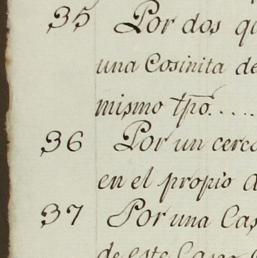 35 Por dos qu
una Cosinita de
mismo tpo....
36 Por un cerc
en el propio a
37 Por una Cas
de este Campo